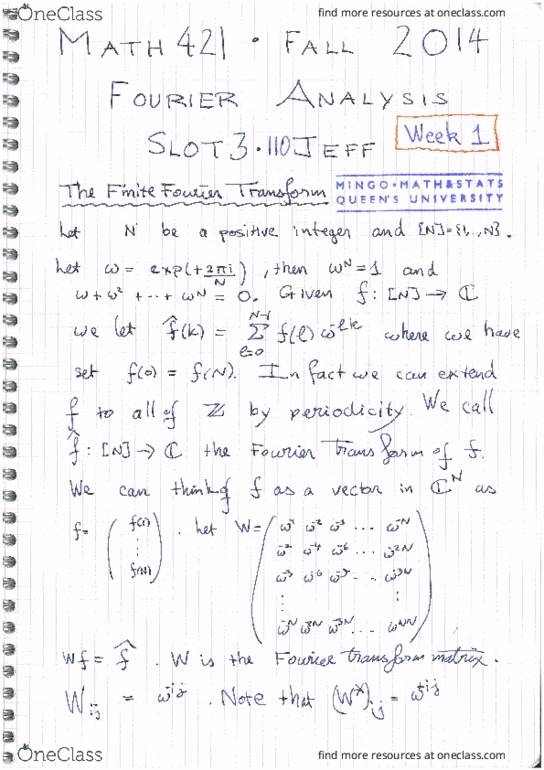 OneClass find more resources at oneclass.com
MATH 421 · FALL 2014
FOURIER ANALYSIS
SLOT 3 · 110 JEFF Week 1
The Finite Fourier Transform MINGO·MATH&STATS
QUEEN'S UNIVERSITY
Let N be a positive integer and [N]={1,..,N}.
Let ω = exp(+2πi/N), then ω^N = 1 and
ω + ω² + ··· + ω^N = 0. Given f: [N] → ℂ
we let f̂(k) = Σ_{ℓ=0}^{N-1} f(ℓ) ω^{-ℓk} where we have
set f(0) = f(N). In fact we can extend
f to all of ℤ by periodicity. We call
f̂ : [N] → ℂ the Fourier Transform of f.
We can think of f as a vector in ℂ^N as
f = ( f(1) ⋮ f(N) ) . Let W = ( ω^{-1} ω^{-2} ω^{-3} ... ω^{-N}
ω^{-2} ω^{-4} ω^{-6} ... ω^{-2N}
ω^{-3} ω^{-6} ω^{-9} ... ω^{-3N}
⋮ ⋮
ω^{-N} ω^{-2N} ω^{-3N} ... ω^{-NN} )
Wf = f̂ . W is the Fourier transform matrix.
W_{ij} = ω^{-ij} . Note that (W*)_{ij} = ω^{+ij}
OneClass find more resources at oneclass.com